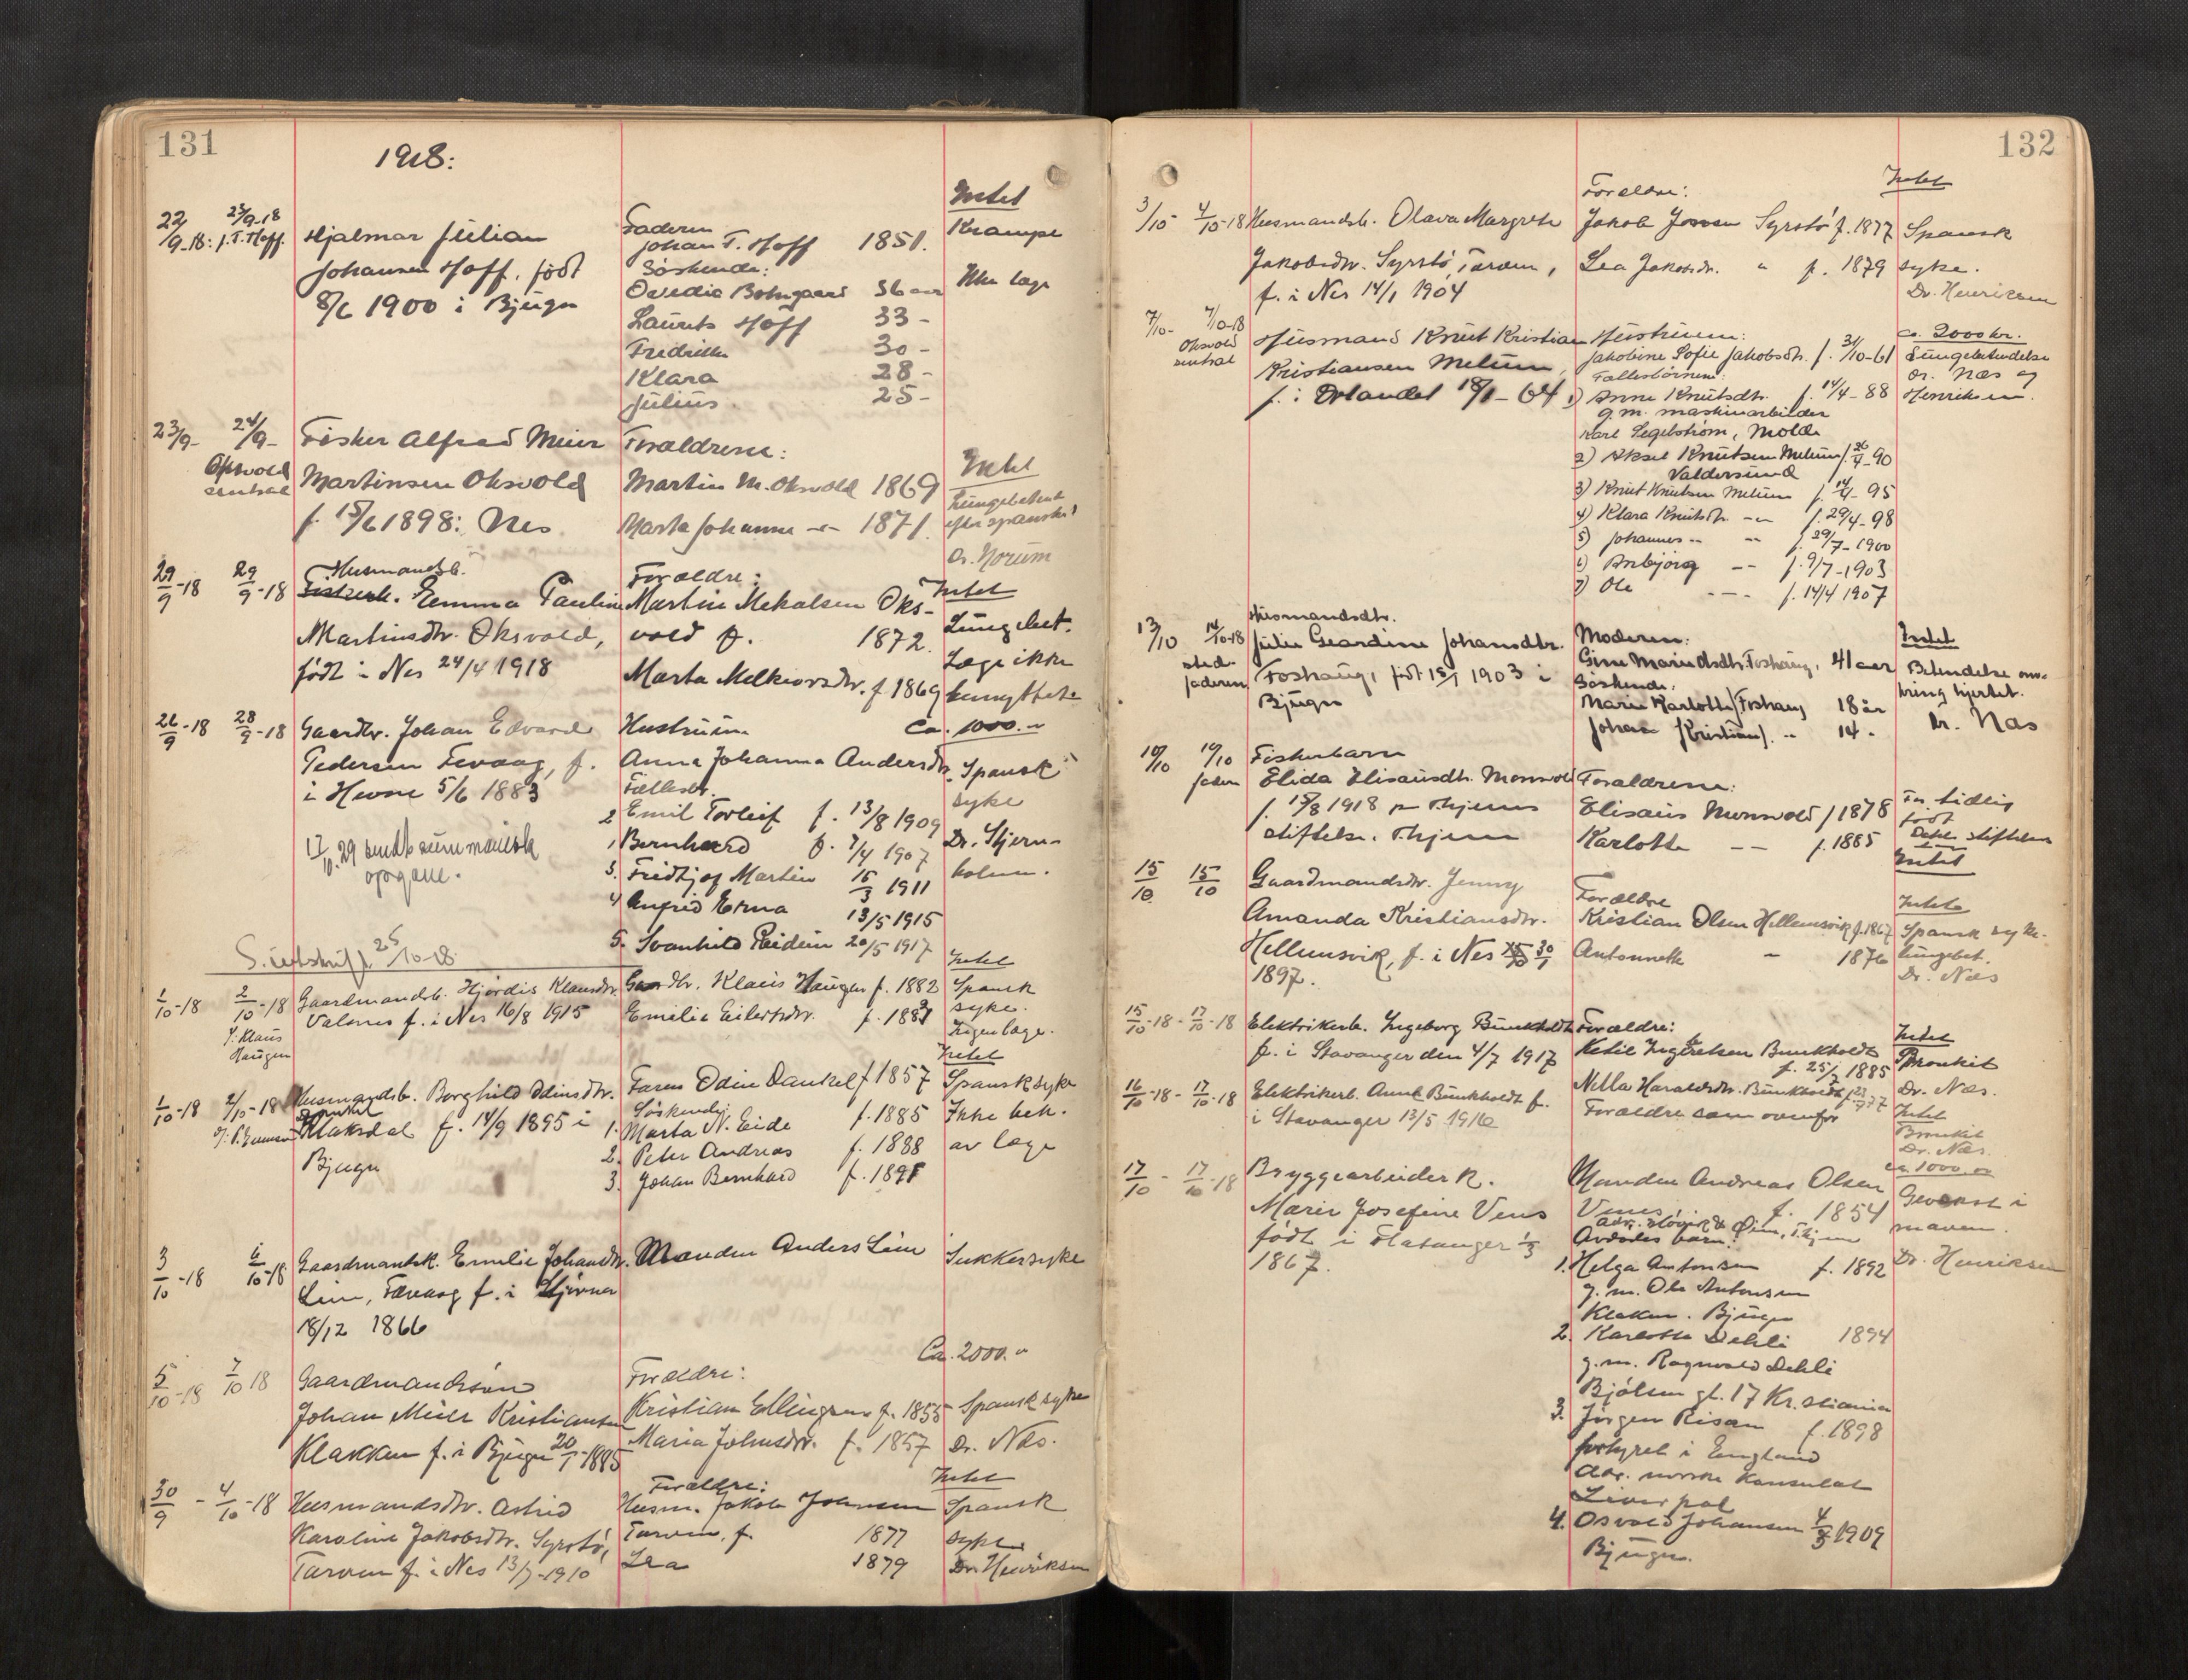 131
1918:
22/9-18: 23/9-18 J. T. Hoff. Hjalmar Julian
Johansen Hoff. født
8/6 1900 i Bjugn
Faderen
Johan T. Hoff 1851.
Søskende:
Ovedie Botngaard 36 aar
Laurits Hoff 33 -
Fredrikke 30 -
Klara 28 -
Julius 25 -
Intet
Krampe
Ikke læge
23/9- 24/9- Fisker Alfred Meier
Oksvold sentral
Martinsen Oksvold
f. 15/6 1898: Nes
Forældrene:
Martin M. Oksvold 1869
Marta Johanna -"- 1871.
Intet
Lungebetent
efter spanske
Dr. Norum
29/9-18 29/9-18 Husmandsb.
Emma Pauline
Martinsdtr. Oksvold,
født i Nes 24/4 1918
Forældre:
Martin Mekalsen Oks-
vold f. 1872.
Marta Melkiorsdtr. f 1869
Intet
Lungebet.
Læge ikke
benyttet
26/9-18 28/9-18 Gaardbr. Johan Edvard
Pedersen Fevaag, f.
i Hevne 5/6 1883
sendt summarisk
opgave.
Hustruen
Anna Johanna Andersdtr
Fællesb.
2 Emil Torleif f. 13/8 1909
1, Bernhard f. 7/4 1907
3. Fridtjof Martin 15/3 1911
4 Anfred Erna 13/5 1915
5. Svanhild Reidun 20/5 1917
Ca. 1000.-
Spansk
syke
Dr. Stjern-
holm.
S. utskrift 25/10-18
1/10-18 2/10-18 Gaardmandsb. Hjørdis Klausdtr.
Valsnes f. i Nes 16/8 1915
J. Klaus
Haugen
Gaardbr. Klaus Haugen f. 1882
Emilie Eilertsdtr. f. 1881
Intet
Spansk
syke.
Ingen læge.
1/10-18 2/10-18 Husmandsb. Borghild Odinsdtr.
Klaksdal f. 14/9 1895 i
Bjugn
Faren Odin Dankel f 1857
Søskende;
1. Marta N. Eide f. 1885
2. Peter Andreas f. 1888
3. Johan Bernhard f. 1891
Intet
Spansksyke
Ikke beh.
av læge
3/10-18 6/10-18 Gaardmandsk. Emilie Johansdtr.
Lien, Fevaag f. i Stjørna
18/12 1866
Manden Anders Lien
Sukkersyke
5/10-18 7/10 18 Gaardmandssøn
Johan Meier Kristiansen
Klakken f. i Bjugn 20/1-1885
Forældre:
Kristian Ellingsen f. 1855
Maria Johnsdtr. f. 1857
Ca. 2000.-
Spansk syke
Dr. Næs.
30/9 - 4/10-18 Husmandsdtr. Astrid
Karoline Jakobsdtr. Syrstø,
Tarven f. i Nes 13/7-1910
Forældre:
Husm. Jakob Johnsen
Tarven, f. 1877
Lea 1879
Intet
Spansk
syke
Dr. Henriksen
132
3/10- 4/10-18 Husmandsb. Olava Margrete
Jakobsdtr. Syrstø, Tarven,
f. i Nes 14/1 1904
Forældre:
Jakob Jonsen Syrstø f. 1877
Lea Jakobsdtr. " f. 1879
Intet
Spansk
syke.
Dr. Henriksen
7/10- 7/10-18
Oksvold
sentral
Husmand Knut Kristian
Kristiansen Melum,
f. i Ørlandet 18/1-64
Hustruen:
Jakobine Sofie Jakobsdtr. f. 31/10-61
Fællesbørnene:
1) Anne Knutsdtr. f. 14/4-88
g.m. maskinarbeider
Karl Segelstrøm, Molde
2) Aksel Knutsen Melum f. 26/4-90
Valdersund
3) Knut Knutsen Melum f. 14/4-95
4) Klara Knutsdtr. -"- f. 29/4-98
5) Johannes -"- -"- f. 29/7-1900
6) Anbjørg -"- f. 9/7-1903
7) Ole -"- f. 14/4 1907
ca. 2000 kr.
Lungebetendelse
Dr. Næs og
Henriksen.
13/10 14/10-18 Husmandsdtr.
Julie Geardine Johansdtr.
Foshaug, født 15/1 1903 i
Bjugn
sted
faderen
Moderen:
Gine Marie Olsdtr. Foshaug, 41 aar
Søskende:
Marie Karlotte Foshaug 18 år
Johan (Kristian). -"- 14 -
Intet
Betendelse om-
kring hjertet.
Dr. Næs
10/10 14/10 Fiskerbarn
faderen
Elida Elisausdtr. Monsvold
f. 15/8 1918 på Thjems
stiftelse. Thjem
Forældrene:
Elisæus Monsvold f 1878
Karlotte -"- f. 1885
For tidlig
født
stiftelsen
Intet
15/10 15/10 Gaardmandsdtr. Jenny
Amanda Kristiansdtr.
Hellemsvik, f. i Nes 30/1
1897.
Forældre
Kristian Olsen Hellemsvik f. 1867
Antonette - 1876
Intet
Spansk syke.
Lungebet.
Dr. Næs
15/10-18 - 17/10-18 Elektrikerb. Ingeborg Bunkholdt
f. i Stavanger den 4/7 1917
Forældre:
Ketil Ingebretsen Bunkholdt
f. 25/2 1885
Nella Haraldsdtr. Bunkholdt
Intet
Bronkit
Dr. Næs.
16/10-18 - 17/10-18 Elektrikerb. Anne Bunkholdt f.
i Stavanger 13/5 1916
Forældre som ovenfor
Intet
Bronkit
Dr. Næs.
17/10 - 17/10-18 Bryggearbeider k.
Marie Josefine Venes
født i Flatanger 1/3
1867.
Manden Andreas Olsen
Venes f. 1854
Avdødes barn:
1. Helga Antonsen f. 1892
g. m. Ole Antonsen
Klakken. Bjugn
2. Karlotte Dehli 1894
g. m. Ragnvald Dehli
Bjølsen gt. 17 Kr.stiania
3. Jørgen Risan f. 1898
forhyret i England
Adr. norske konsulat
Liverpol
4. Osvald Johansen 4/3 1909
Bjugn.
ca 1000.00
Gevekst i
maven.
Dr. Henriksen